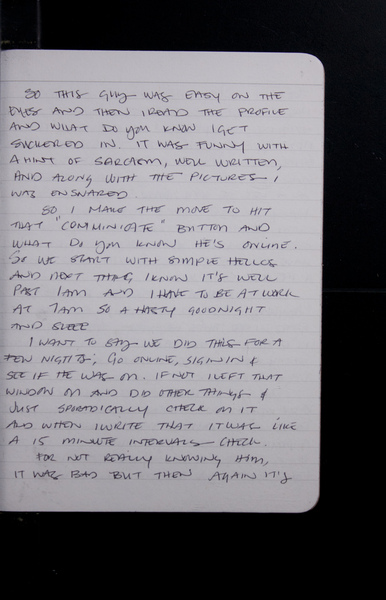 SO THIS GUY WAS EASY ON THE
EYES AND THEN I READ THE PROFILE
AND WHAT DO YOU KNOW I GET
SUCKERED IN. IT WAS FUNNY WITH
A HINT OF SARCASM, WELL WRITTEN,
AND ALONG WITH THE PICTURES I
WAS ENSNARED.
SO I MAKE THE MOVE TO HIT
THAT "COMMUNICATE" BUTTON AND
WHAT DO YOU KNOW HE'S ONLINE.
SO WE START WITH SIMPLE HELLOS
AND NEXT THING I KNOW IT'S WELL
PAST 1AM AND I HAVE TO BE AT WORK
AT 7AM SO A HASTY GOODNIGHT
AND SLEEP
I WANT TO SAY WE DID THIS FOR A
FEW NIGHTS; GO ONLINE, SIGN IN &
SEE IF HE WAS ON. IF NOT I LEFT THAT
WINDOW ON AND DID OTHER THINGS &
JUST SPORADICALLY CHECK ON IT
AND WHEN I WRITE THAT IT WAS LIKE
A 15 MINUTE INTERVALS CHECK.
FOR NOT REALLY KNOWING HIM,
IT WAS BAD BUT THEN AGAIN IT'S